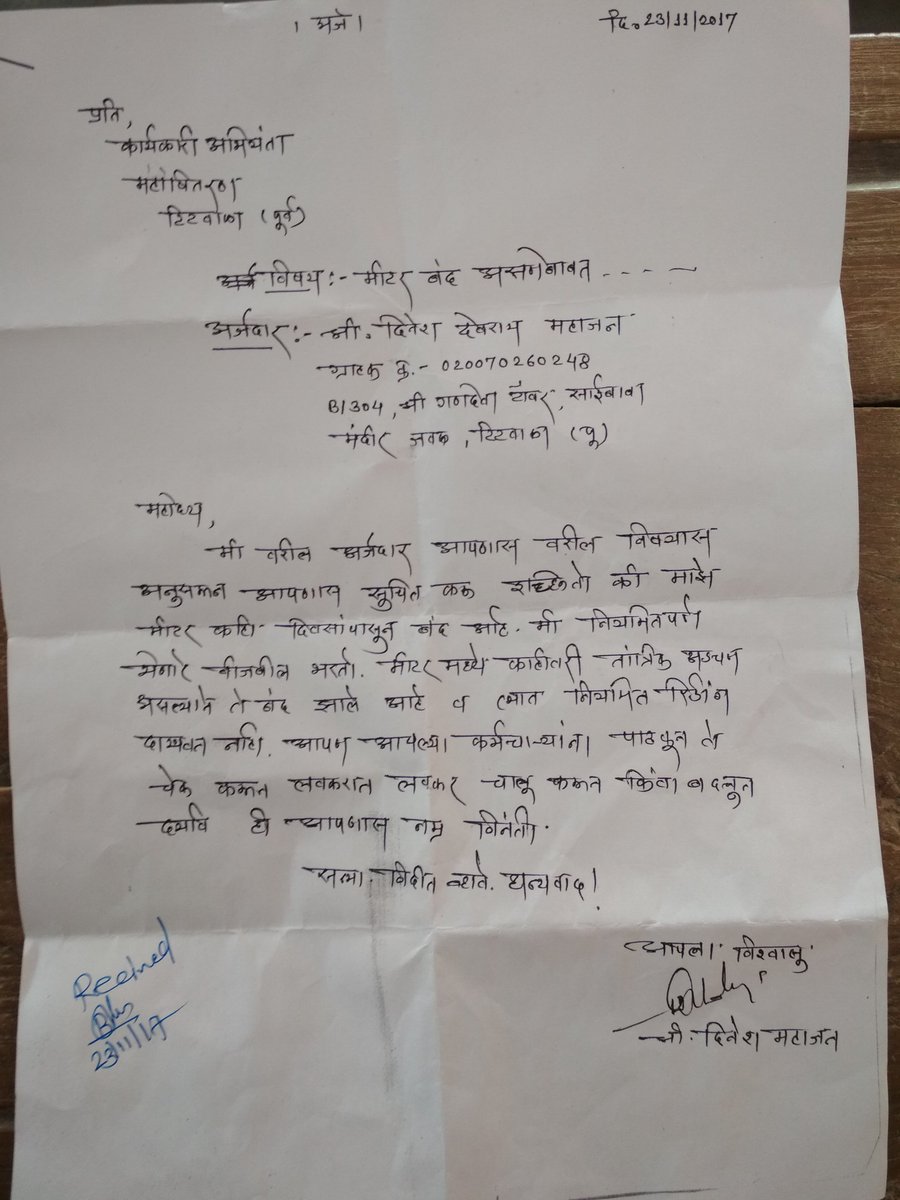 । अर्ज ।
दि. 23/11/2017
प्रति,
कार्यकारी अभियंता
महावितरण
टिटवाळा (पूर्व)
विषय :- मीटर बंद असलेबाबत - - - -
अर्जदार :- श्री. दिनेश देवराम महाजन
ग्राहक क्रु. - 020070260248
B/304, श्री गणदेवा टॉवर, साईबाबा
मंदीर जवळ, टिटवाळा (पू)
महोदय,
मी वरील अर्जदार आपणास वरील विषयास
अनुसरून आपणास सुचित करू इच्छितो की माझे
मीटर काही दिवसांपासून बंद आहे. मी नियमितपणे
वीजबील भरतो. मीटर मध्ये काहीतरी तांत्रिक अडचण
असल्याने ते बंद झाले आहे व त्यात नियमित रिडींग
दाखवत नाही. आपण आपल्या कर्मचाऱ्यांना पाठवून ते
चेक करून लवकरात लवकर चालू करून किंवा बदलून
द्यावे ही आपणास नम्र विनंती.
विदीत व्हावे. धन्यवाद!
आपला विश्वासु
श्री. दिनेश महाजन
Received
23/11/17